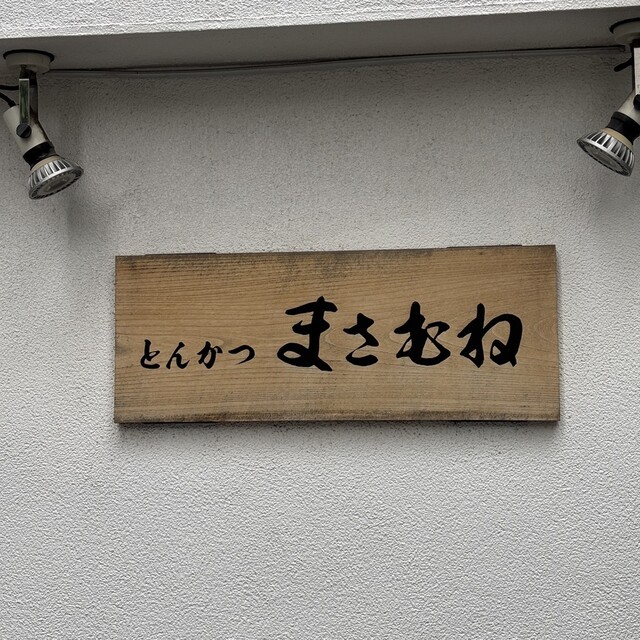 とんかつ まさむね